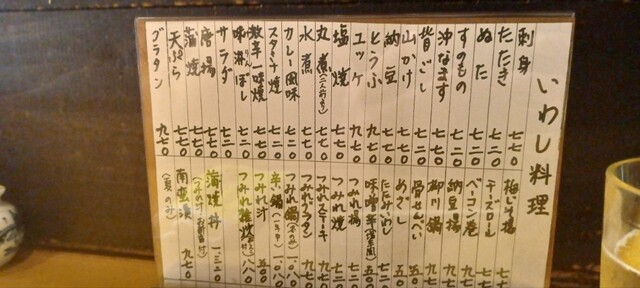 いわし料理
刺身 七七〇
たたき 七七〇
ぬた 七二〇
すのもの 七二〇
沖なます 七七〇
背ごし 七二〇
山かけ 七七〇
納豆 七二〇
とうふ 九七〇
ユッケ 九七〇
塩焼 七二〇
丸煮(二人前より) 七七〇
水煮 七七〇
カレー風味 七二〇
スタミナ焼 七七〇
激辛一味焼 七七〇
味淋ぼし 七二〇
サラダ 七二〇
唐揚 七七〇
蒲焼 七七〇
天ぷら 七七〇
グラタン 九七〇
梅しそ揚
チーズロール
ベーコン巻
納豆揚
柳川鍋
骨せんべい
めざし
たたみいわし
味噌
つみれ揚
つみれ焼
つみれステーキ
つみれグラタン 九七〇
つみれ鍋 一、〇八〇
辛鍋 一、〇八〇
つみれ汁 五〇〇
つみれ雑炊
蒲焼丼 一、三二〇
南蛮漬 九七〇
(夏のみ)